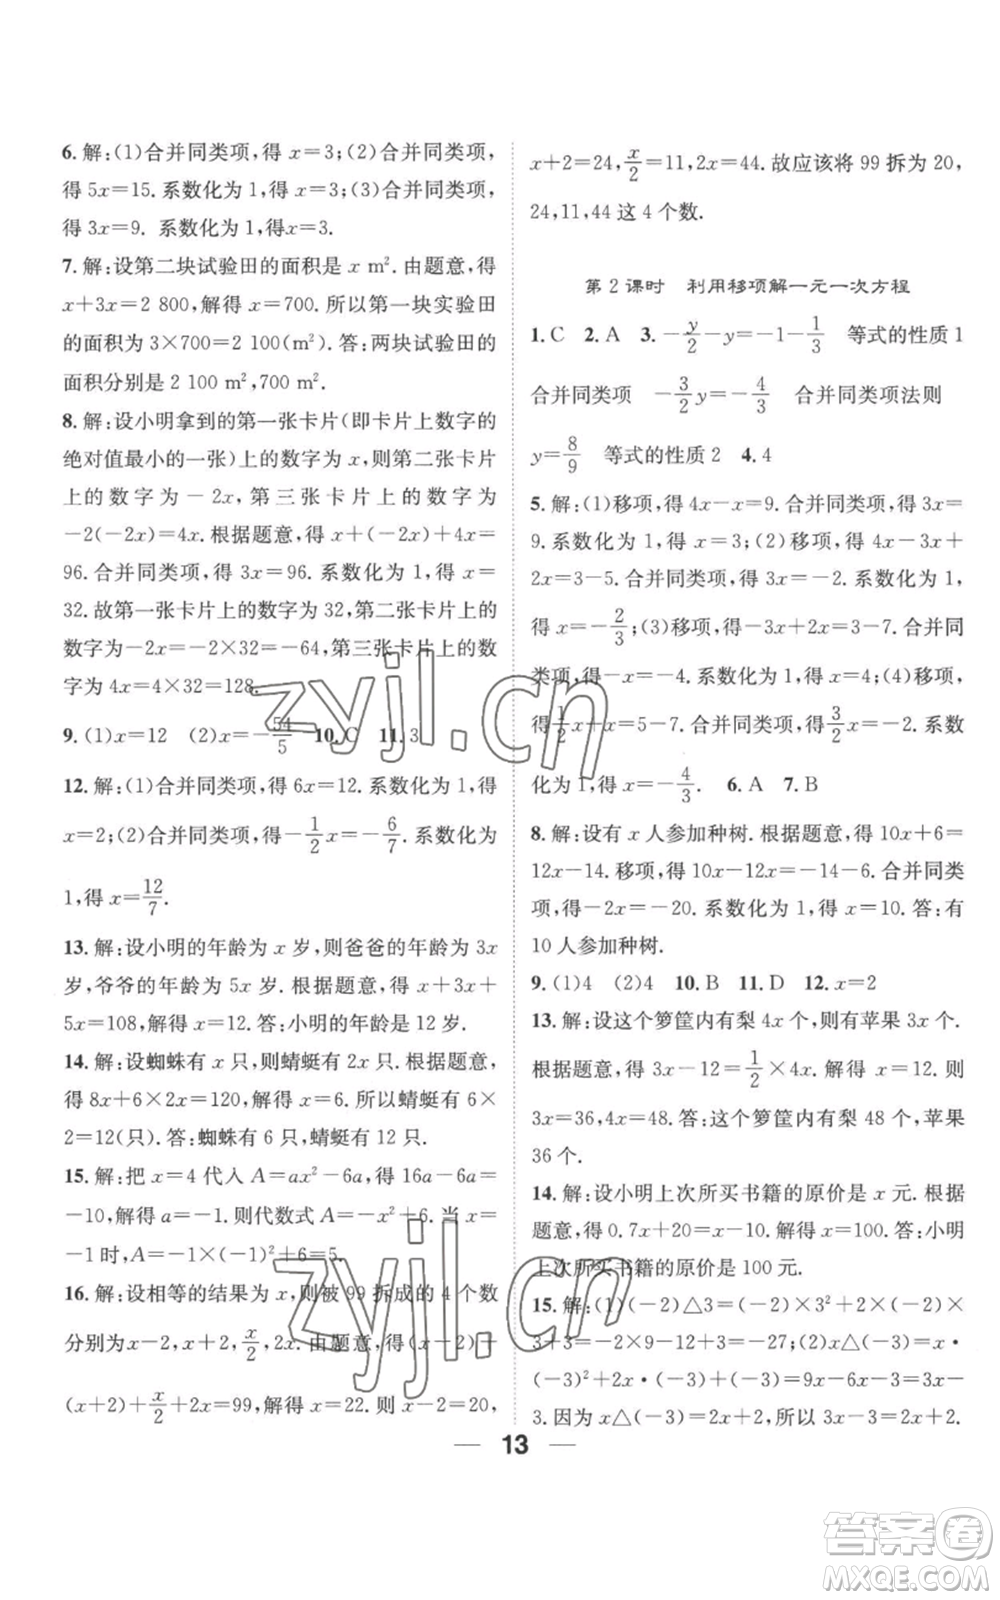 6. 解:(1)合并同类项,得 x=3;(2)合并同类项,
得 5x=15. 系数化为 1,得 x=3;(3)合并同类项,
得 3x=9. 系数化为 1,得 x=3.
7. 解:设第二块试验田的面积是 x m². 由题意,得
x+3x=2 800,解得 x=700. 所以第一块实验田
的面积为 3×700=2 100(m²). 答:两块试验田的
面积分别是 2 100 m²,700 m².
8. 解:设小明拿到的第一张卡片(即卡片上数字的
绝对值最小的一张)上的数字为 x,则第二张卡片
上的数字为 -2x,第三张卡片上的数字为
-2(-2x)=4x. 根据题意,得 x+(-2x)+4x=
96. 合并同类项,得 3x=96. 系数化为 1,得 x=
32. 故第一张卡片上的数字为 32,第二张卡片上的
数字为-2x=-2×32=-64,第三张卡片上的数
字为 4x=4×32=128.
9. (1)x=12 (2)x=-54/5 10. C 11. 3
12. 解:(1)合并同类项,得 6x=12. 系数化为 1,得
x=2;(2)合并同类项,得-1/2x=-6/7. 系数化为
1,得 x=12/7.
13. 解:设小明的年龄为 x 岁,则爸爸的年龄为 3x
岁,爷爷的年龄为 5x 岁. 根据题意,得 x+3x+
5x=108,解得 x=12. 答:小明的年龄是 12 岁.
14. 解:设蜘蛛有 x 只,则蜻蜓有 2x 只. 根据题意,
得 8x+6×2x=120,解得 x=6. 所以蜻蜓有 6×
2=12(只). 答:蜘蛛有 6 只,蜻蜓有 12 只.
15. 解:把 x=4 代入 A=ax²-6a,得 16a-6a=
-10,解得 a=-1. 则代数式 A=-x²+6. 当 x=
-1 时,A=-1×(-1)²+6=5.
16. 解:设相等的结果为 x,则被 99 拆成的 4 个数
分别为 x-2,x+2,x/2,2x. 由题意,得(x-2)+
(x+2)+x/2+2x=99,解得 x=22. 则 x-2=20,
x+2=24,x/2=11,2x=44. 故应该将 99 拆为 20,
24,11,44 这 4 个数.
第 2 课时 利用移项解一元一次方程
1. C 2. A 3. -y/2-y=-1-1/3 等式的性质 1
合并同类项 -3/2y=-4/3 合并同类项法则
y=8/9 等式的性质 2 4. 4
5. 解:(1)移项,得 4x-x=9. 合并同类项,得 3x=
9. 系数化为 1,得 x=3;(2)移项,得 4x-3x+
2x=3-5. 合并同类项,得 3x=-2. 系数化为 1,
得 x=-2/3;(3)移项,得-3x+2x=3-7. 合并同
类项,得-x=-4. 系数化为 1,得 x=4;(4)移项,
得1/2x+x=5-7. 合并同类项,得3/2x=-2. 系数
化为 1,得 x=-4/3. 6. A 7. B
8. 解:设有 x 人参加种树. 根据题意,得 10x+6=
12x-14. 移项,得 10x-12x=-14-6. 合并同类
项,得-2x=-20. 系数化为 1,得 x=10. 答:有
10 人参加种树.
9. (1)4 (2)4 10. B 11. D 12. x=2
13. 解:设这个箩筐内有梨 4x 个,则有苹果 3x 个.
根据题意,得 3x-12=1/2×4x. 解得 x=12. 则
3x=36,4x=48. 答:这个箩筐内有梨 48 个,苹果
36 个.
14. 解:设小明上次所买书籍的原价是 x 元. 根据
题意,得 0.7x+20=x-10. 解得 x=100. 答:小明
上次所买书籍的原价是 100 元.
15. 解:(1)(-2)△3=(-2)×3²+2×(-2)×
3+3=-2×9-12+3=-27;(2)x△(-3)=x·
(-3)²+2x·(-3)+(-3)=9x-6x-3=3x-
3. 因为 x△(-3)=2x+2,所以 3x-3=2x+2.
13
zyjl.cn
zyjl.cn
答案卷
MXQE.COM